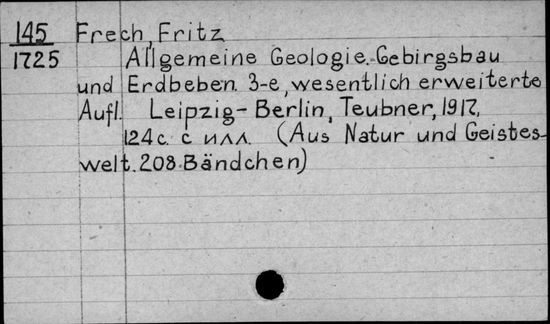 145 Frech, Fritz
1725 Allgemeine Geologie. Gebirgsbau
und Erdbeben. 3-e, wesentlich erweiterte
Aufl. Leipzig - Berlin, Teubner, 1917,
124с. с илл. (Aus Natur und Geistes-
welt. 208 Bändchen)